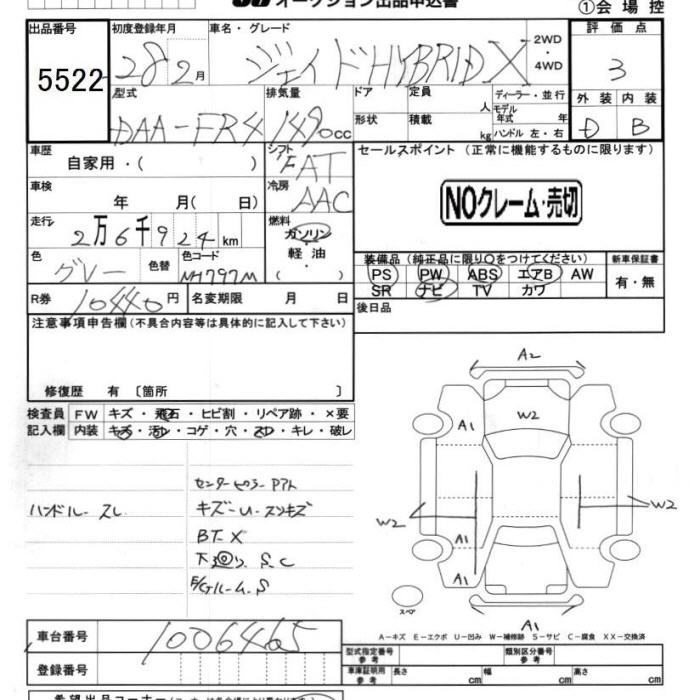 オークション出品申込書
①会場控
出品番号 初度登録年月 車名・グレード 2WD・4WD 評価点
5522 28 2月 ジェイド HYBRID X 3
型式 排気量 ドア 定員 人 ディーラー・並行 外装 内装
DAA-FR4 1490cc 形状 積載 kg モデル年式 年 ハンドル 左・右 D B
車歴 シフト セールスポイント (正常に機能するものに限ります)
自家用・( ) FAT
車検 冷房 NOクレーム・売切
年 月( 日) AAC
走行 燃料
2万6千924km ガソリン
色 色替 色コード 軽油 装備品 (純正品に限り○をつけてください) 新車保証書
グレー NH797M ・( ) PS PW ABS エアB AW 有・無
R券 10440円 名変期限 月 日 SR ナビ TV カワ
注意事項申告欄(不具合内容等は具体的に記入して下さい) 後日品
修復歴 有 〔箇所 〕
検査員 FW キズ・飛石・ヒビ割・リペア跡・×要
記入欄 内装 キズ・汚レ・コゲ・穴・スレ・キレ・破レ
センターピラー Pアト
ハンドルースレ キズーU-スリキズ
BT.X
下廻り S.C
E/Gルーム.S
A2
W2
A1
W2 W2
A1
A1
スペア
A1
A-キズ E-エクボ U-凹み W-補修跡 S-サビ C-腐食 XX-交換済
車台番号 1006465 型式指定番号 参考 類別区分番号 参考
登録番号 車庫証明用 参考 長さ cm 幅 cm 高さ cm
希望出品コーナー